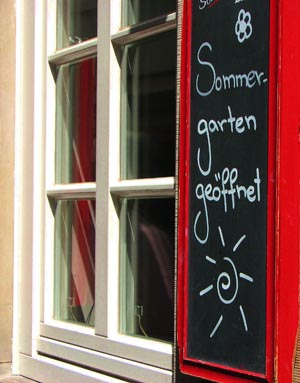 Sommer-
garten
geöffnet